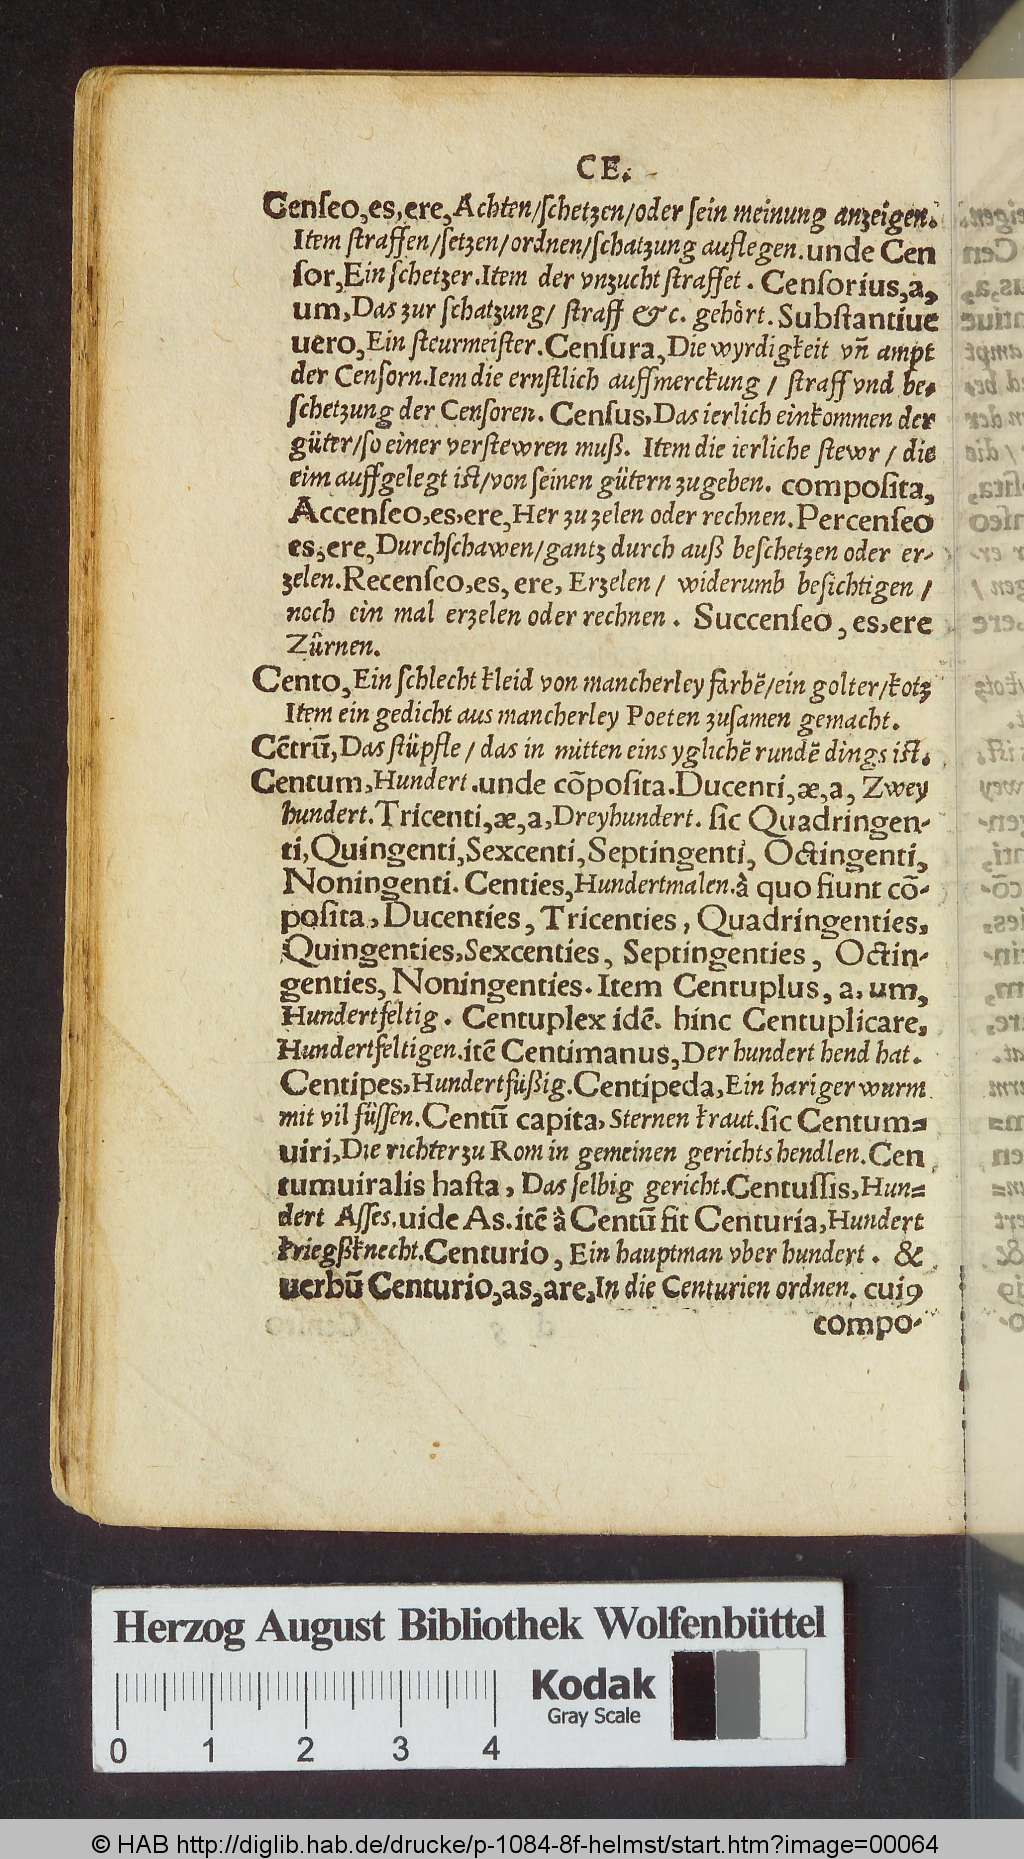 CE.
Censeo, es, ere, Achten/schetzen/oder sein meinung anzeigen.
Item straffen/setzen/ordnen/schatzung auflegen. unde Cen
sor, Ein schetzer. Item der vnzucht straffet. Censorius, a,
um, Das zur schatzung/ straff &c. gehört. Substantiue
uero, Ein steurmeister. Censura, Die wyrdigkeit vñ ampt
der Censorn. Iem die ernstlich auffmerckung / straff vnd be-
schetzung der Censoren. Census, Das ierlich einkommen der
güter/so einer versteuren muß. Item die ierliche stewr / die
eim auffgelegt ist/von seinen gütern zugeben. composita,
Accenseo, es, ere, Her zu zelen oder rechnen. Percenseo
es, ere, Durchschawen/gantz durch auß beschetzen oder er-
zelen. Recenseo, es, ere, Erzelen / widerumb besichtigen /
noch ein mal erzelen oder rechnen. Succenseo, es, ere
Zürnen.
Cento, Ein schlecht kleid von mancherley farbẽ/ein golter/kotz
Item ein gedicht aus mancherley Poeten zusamen gemacht.
Cẽtrũ, Das stüpfle / das in mitten eins yglichẽ rundẽ dings ist.
Centum, Hundert. unde cõposita. Ducenti, æ, a, Zwey
hundert. Tricenti, æ, a, Dreyhundert. sic Quadringen-
ti, Quingenti, Sexcenti, Septingenti, Octingenti,
Noningenti. Centies, Hundertmalen. à quo fiunt cõ-
posita, Ducenties, Tricenties, Quadringenties,
Quingenties, Sexcenties, Septingenties, Octin-
genties, Noningenties. Item Centuplus, a, um,
Hundertfeltig. Centuplex idẽ. hinc Centuplicare,
Hundertfeltigen. itẽ Centimanus, Der hundert hend hat.
Centipes, Hundertfüßig. Centipeda, Ein hariger wurm
mit vil füssen. Centũ capita, Sternen kraut. sic Centum-
uiri, Die richter zu Rom in gemeinen gerichts hendlen. Cen
tumuiralis hasta, Das selbig gericht. Centussis, Hun-
dert Asses. uide As. itẽ à Centũ fit Centuria, Hundert
kriegßknecht. Centurio, Ein hauptman vber hundert. &
uerbũ Centurio, as, are, In die Centurien ordnen. cuiꝰ
compo-
Herzog August Bibliothek Wolfenbüttel
Kodak
Gray Scale
0 1 2 3 4
© HAB http://diglib.hab.de/drucke/p-1084-8f-helmst/start.htm?image=00064